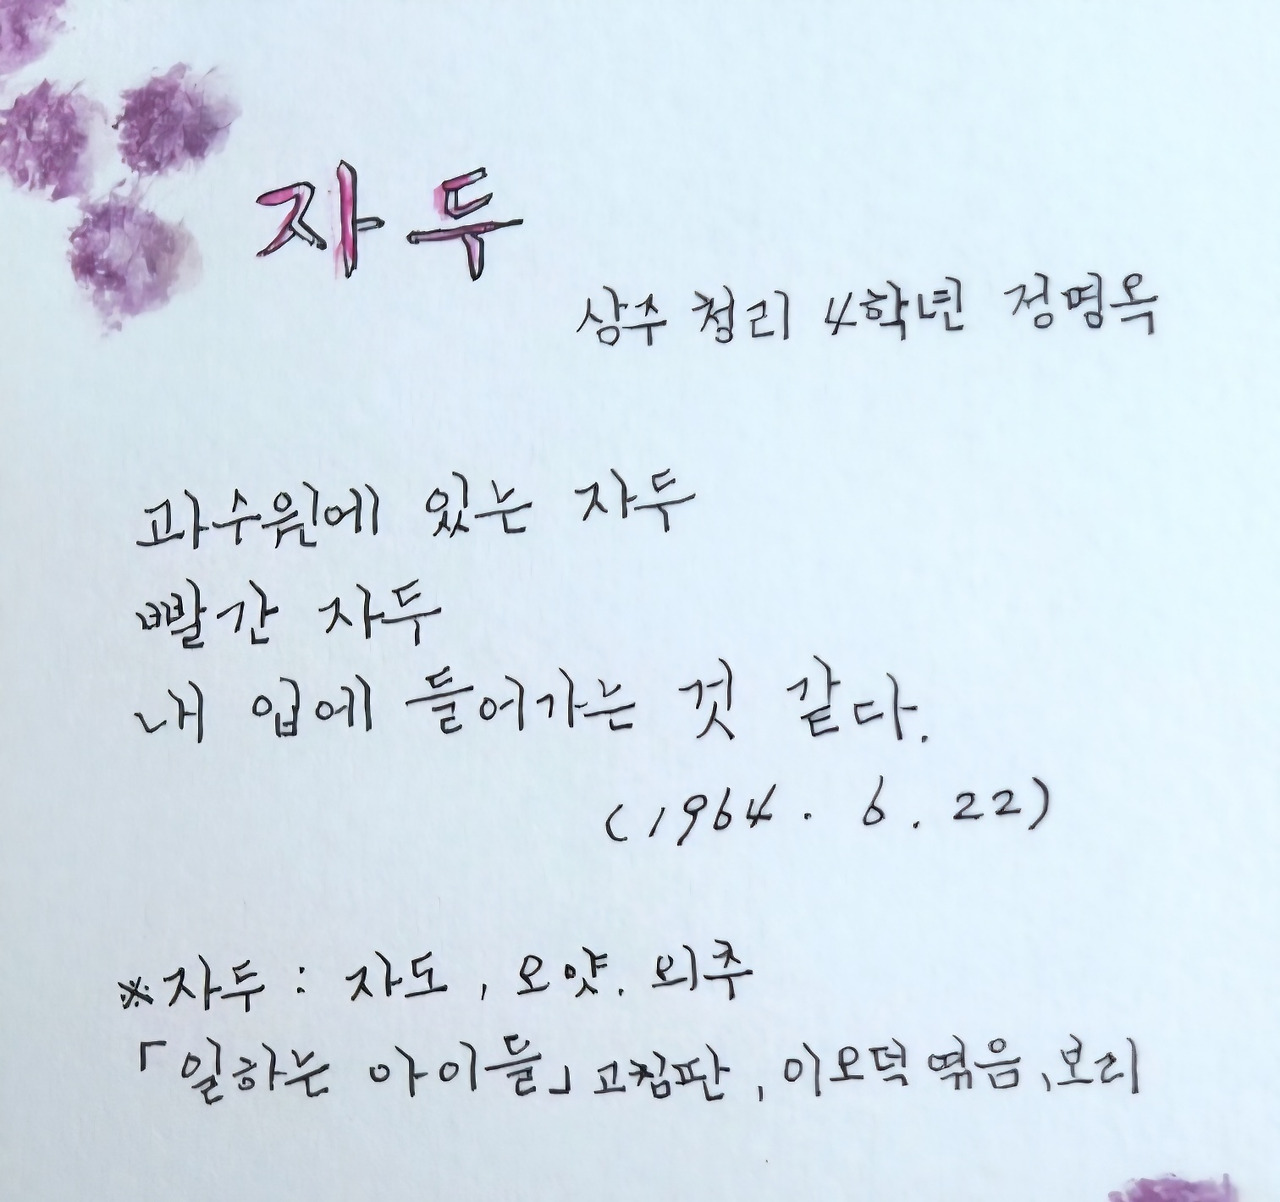 자두
상주 청리 4학년 정명옥
과수원에 있는 자두
빨간 자두
내 입에 들어가는 것 같다.
(1964. 6. 22)
※자두 : 자도, 오얏. 외추
「일하는 아이들」 고침판, 이오덕 엮음, 보리